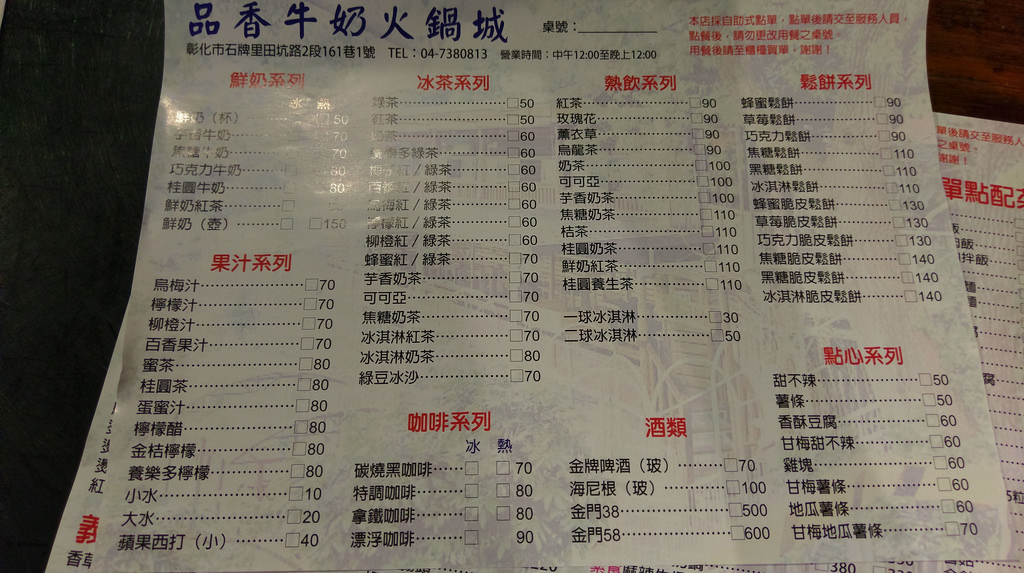 品香牛奶火鍋城
桌號：
彰化市石牌里田坑路2段161巷1號 TEL：04-7380813 營業時間：中午12:00至晚上12:00
本店採自助式點單，點單後請交至服務人員，
點餐後，請勿更改用餐之桌號。
用餐後請至櫃檯買單，謝謝！
鮮奶系列
冰 熱
鮮奶（杯） 50
芋香牛奶 70
焦糖牛奶 70
巧克力牛奶 80
桂圓牛奶 80
鮮奶紅茶
鮮奶（壺） 150
果汁系列
烏梅汁 70
檸檬汁 70
柳橙汁 70
百香果汁 70
蜜茶 80
桂圓茶 80
蛋蜜汁 80
檸檬醋 80
金桔檸檬 80
養樂多檸檬 80
小水 10
大水 20
蘋果西打（小） 40
冰茶系列
綠茶 50
紅茶 50
奶茶 60
多綠茶 60
紅/綠茶 60
百香紅/綠茶 60
烏梅紅/綠茶 60
檸檬紅/綠茶 60
柳橙紅/綠茶 60
蜂蜜紅/綠茶 70
芋香奶茶 70
可可亞 70
焦糖奶茶 70
冰淇淋紅茶 70
冰淇淋奶茶 80
綠豆冰沙 70
咖啡系列
冰 熱
碳燒黑咖啡 70
特調咖啡 80
拿鐵咖啡 80
漂浮咖啡 90
熱飲系列
紅茶 90
玫瑰花 90
薰衣草 90
烏龍茶 90
奶茶 100
可可亞 100
芋香奶茶 100
焦糖奶茶 110
桔茶 110
桂圓奶茶 110
鮮奶紅茶 110
桂圓養生茶 110
一球冰淇淋 30
二球冰淇淋 50
酒類
金牌啤酒（玻） 70
海尼根（玻） 100
金門38 500
金門58 600
鬆餅系列
蜂蜜鬆餅 90
草莓鬆餅 90
巧克力鬆餅 90
焦糖鬆餅 110
黑糖鬆餅 110
冰淇淋鬆餅 110
蜂蜜脆皮鬆餅 130
草莓脆皮鬆餅 130
巧克力脆皮鬆餅 130
焦糖脆皮鬆餅 140
黑糖脆皮鬆餅 140
冰淇淋脆皮鬆餅 140
點心系列
甜不辣 50
薯條 50
香酥豆腐 60
甘梅甜不辣 60
雞塊 60
甘梅薯條 60
地瓜薯條 60
甘梅地瓜薯條 70
單後請交至服務人
之桌號。
謝謝！
單點配菜
拌飯
380
330